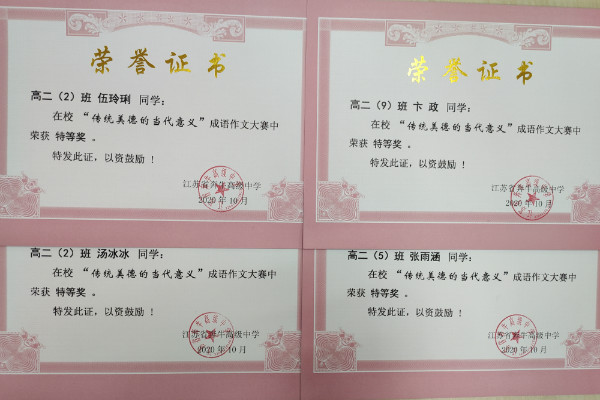 荣誉证书
高二（2）班 伍玲琍 同学：
在校 “传统美德的当代意义”成语作文大赛中
荣获 特等奖 。
特发此证，以资鼓励 ！
江苏省奔牛高级中学
2020 年 10 月
荣誉证书
高二（9）班 卞 政 同学：
在校 “传统美德的当代意义”成语作文大赛中
荣获 特等奖 。
特发此证，以资鼓励 ！
江苏省奔牛高级中学
2020 年 10 月
高二（2）班 汤冰冰 同学：
在校 “传统美德的当代意义”成语作文大赛中
荣获 特等奖 。
特发此证，以资鼓励 ！
江苏省奔牛高级中学
2020 年 10 月
高二（5）班 张雨涵 同学：
在校 “传统美德的当代意义”成语作文大赛中
荣获 特等奖 。
特发此证，以资鼓励 ！
江苏省奔牛高级中学
2020 年 10 月